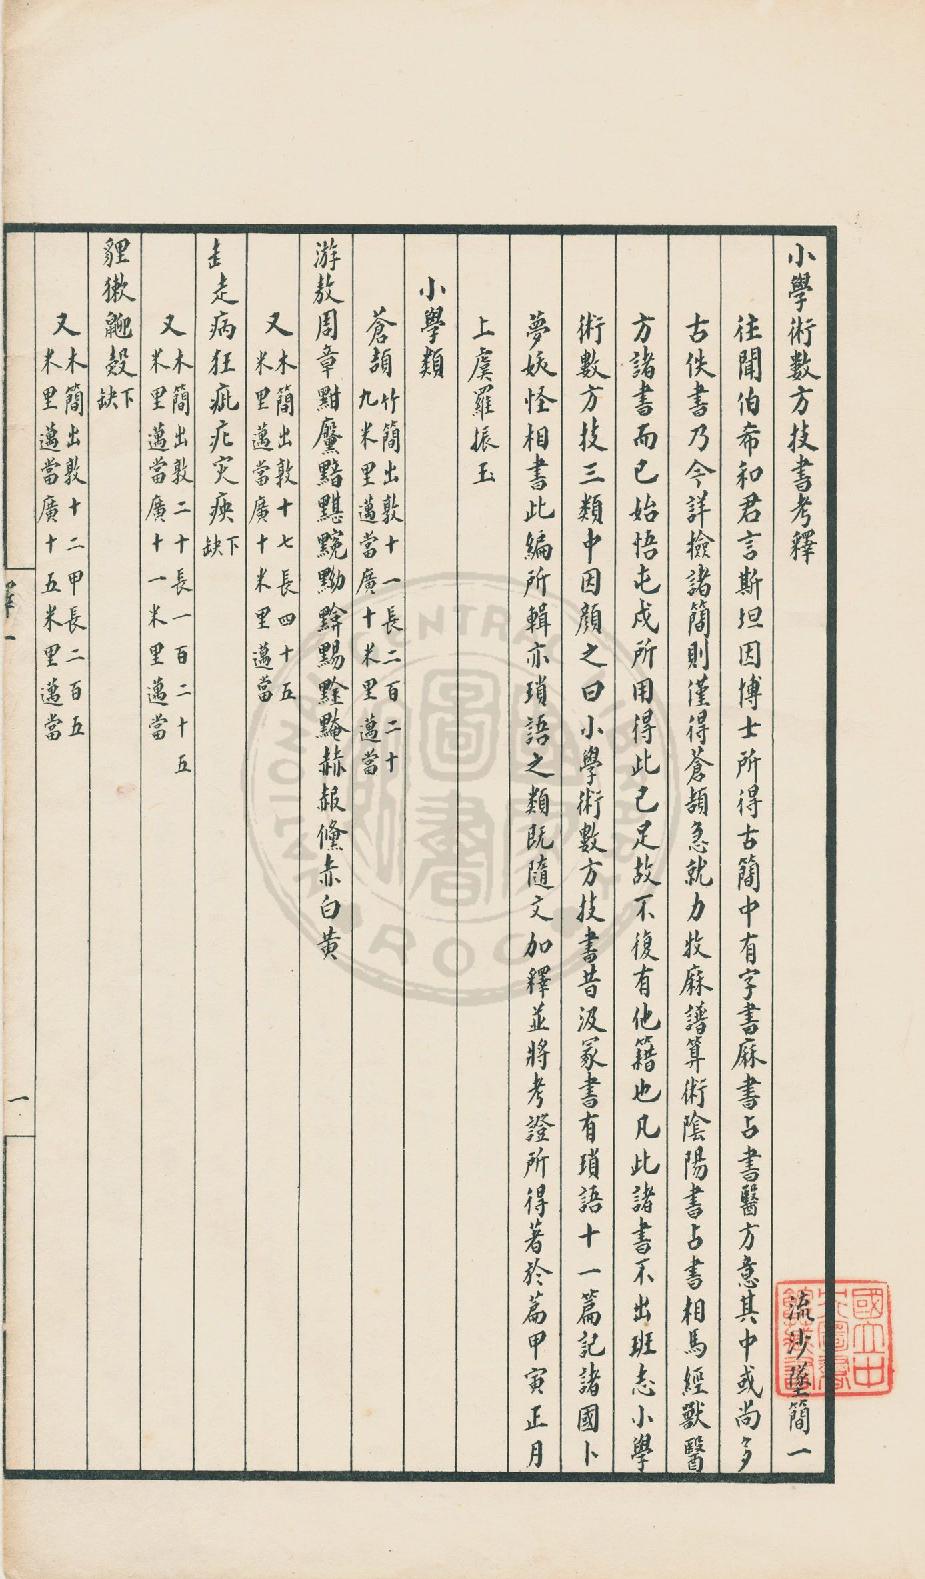 小學術數方技書考釋 流沙墜簡一
往聞伯希和君言斯坦因博士所得古簡中有字書厤書占書醫方意其中或尚多
古佚書乃今詳檢諸簡則僅得蒼頡急就力牧厤譜算術陰陽書占書相馬經獸醫
方諸書而已始悟屯戍所用得此已足故不復有他籍也凡此諸書不出班志小學
術數方技三類中因顏之曰小學術數方技書昔汲冢書有瑣語十一篇記諸國卜
夢妖怪相書此編所輯亦瑣語之類既隨文加釋並將考證所得著於篇甲寅正月
上虞羅振玉
小學類
蒼頡 竹簡出敦十一長二百二十
九米里邁當廣十米里邁當
游敖周章黚黶黯黮䵳黝黭黤赫赧儵赤白黃
又 木簡出敦十七長四十五
米里邁當廣十米里邁當
走病狂疵疕灾殃 下
缺
又 木簡出敦二十長一百二十五
米里邁當廣十一米里邁當
貍獺鼶榖 下
缺
又 木簡出敦十二甲長二百五
米里邁當廣十五米里邁當
釋一
一
國立中
央圖書
館藏書